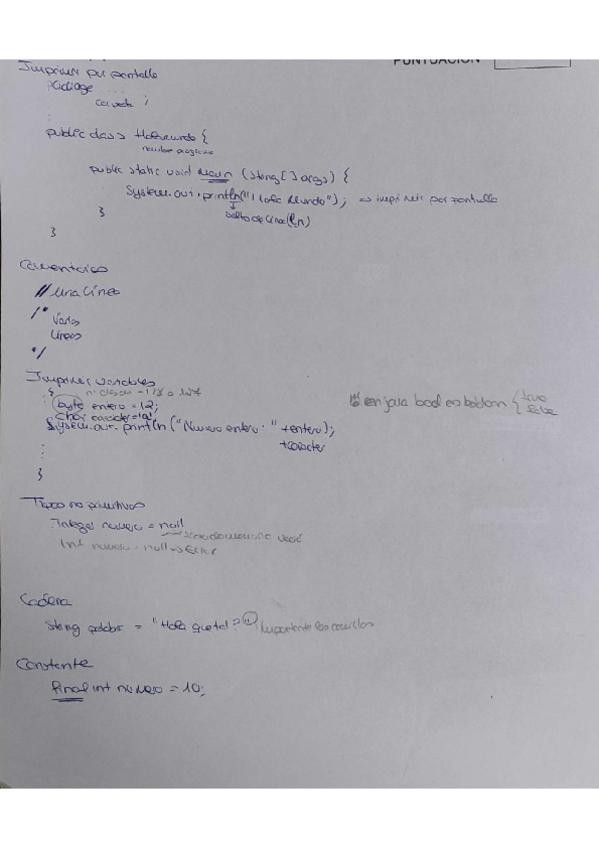 PUNTUACIÓN
Imprimir por pantalla
public class Holamundo {
nombre programa
public static void main (String [] args) {
System.out.println("Hola Mundo"); => imprimir por pantalla
salto de línea (ln)
}
}
Comentarios
// Una línea
/*
Varias
Líneas
*/
Imprimir variables
{
byte entero = 12;
char caracter='a';
System.out.println ("Numero entero: " +entero);
+caracter
}
en java bool es boolean { true
false
Tipos no primitivos
Integer numero = null
int numero = null -> Error
Cadena
String palabra = "Hola que tal?" Importante las comillas
Constante
final int numero = 10;